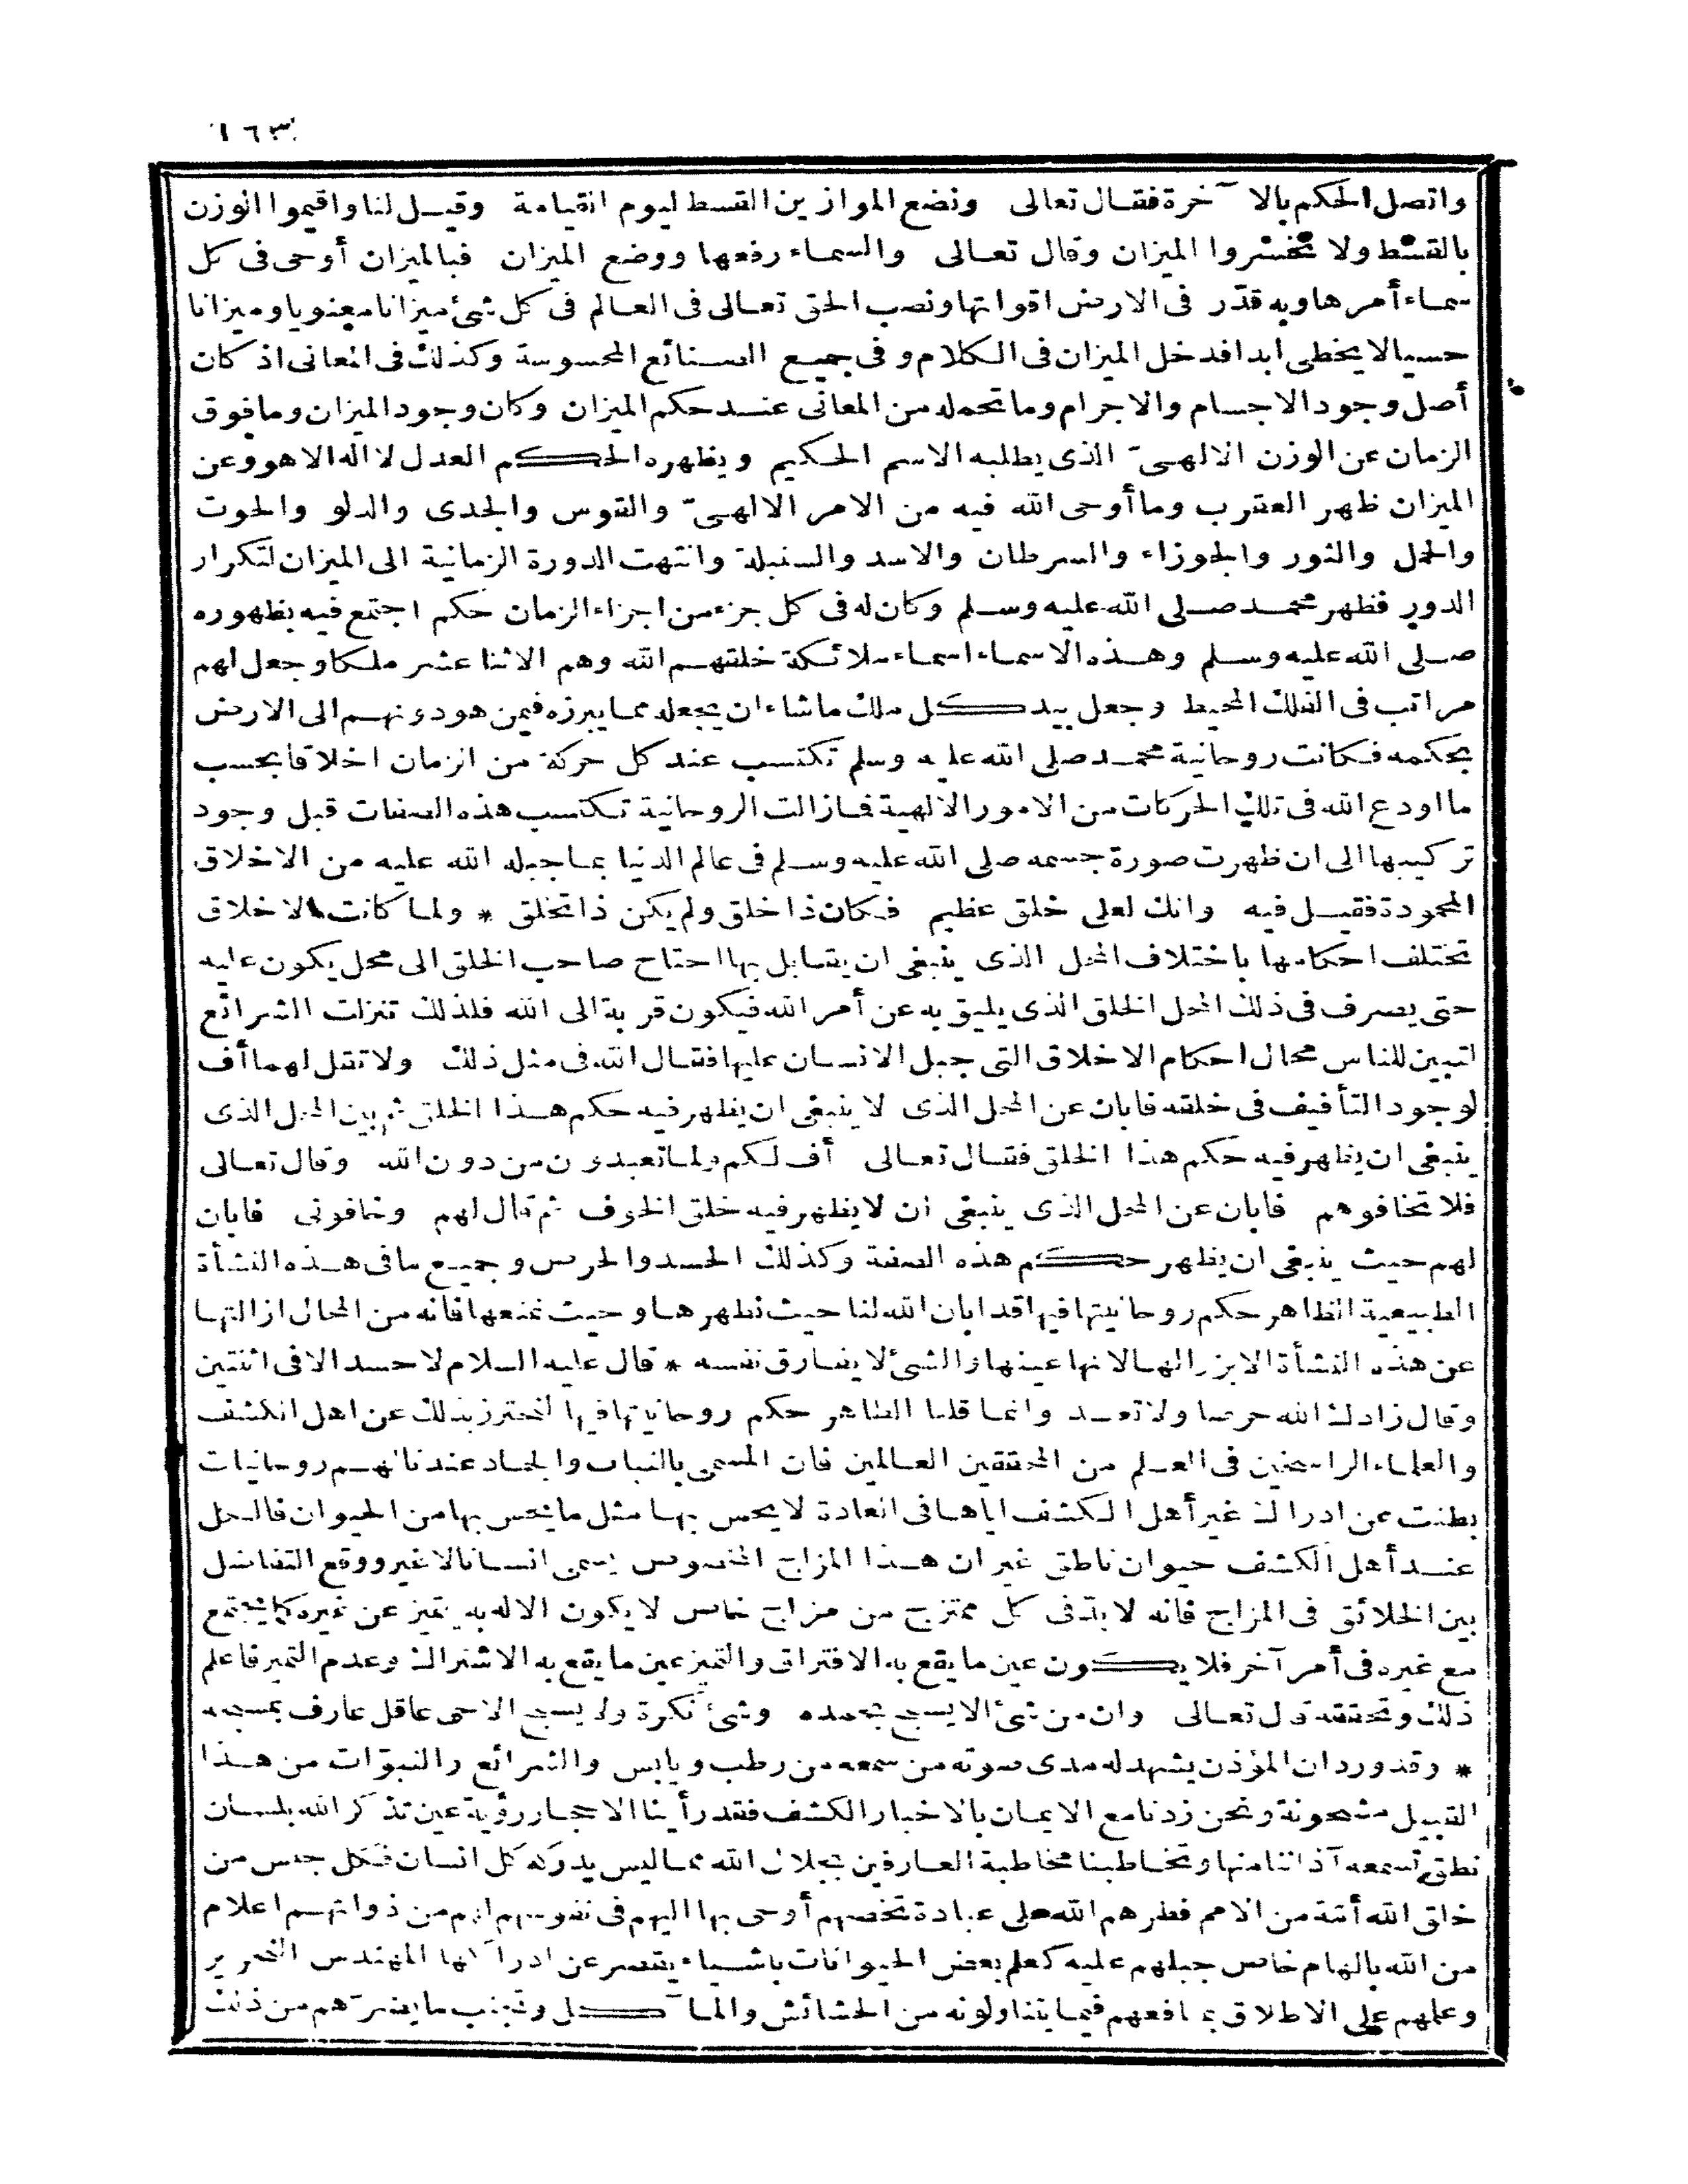 ١٦٣
واتصل الحكم بالآخرة فقال تعالى ونضع الموازين القسط ليوم القيامة وقيل لنا واقيموا الوزن
بالقسط ولا تخسروا الميزان وقال تعالى والسماء رفعها ووضع الميزان فبالميزان أوحى فى كل
سماء أمرها وبه قدّر فى الارض اقواتها ونصب الحق تعالى فى العالم فى كل شئ ميزانا معنويا وميزانا
حسيا لا يخطى ابدا فدخل الميزان فى الكلام وفى جميع الصنائع المحسوسة وكذلك فى المعانى اذ كان
أصل وجود الاجسام والاجرام وما تحمله من المعانى عند حكم الميزان وكان وجود الميزان وما فوق
الزمان عن الوزن الالهىّ الذى يطلبه الاسم الحكيم ويظهره الحكم العدل لا اله الا هو وعن
الميزان ظهر العقرب وما أوحى الله فيه من الامر الالهىّ والقوس والجدى والدلو والحوت
والحمل والثور والجوزاء والسرطان والاسد والسنبلة وانتهت الدورة الزمانية الى الميزان لتكرار
الدور فظهر محمد صلى الله عليه وسلم وكان له فى كل جزء من اجزاء الزمان حكم اجتمع فيه بظهوره
صلى الله عليه وسلم وهذه الاسماء اسماء ملائكة خلقهم الله وهم الاثنا عشر ملكا وجعل لهم
مراتب فى الفلك المحيط وجعل بيد كل ملك ما شاء ان يجعله مما يبرزه فيمن هو دونهم الى الارض
بحكمه فكانت روحانية محمد صلى الله عليه وسلم تكتسب عند كل حركة من الزمان اخلاقا بحسب
ما اودع الله فى تلك الحركات من الامور الالهية فما زالت الروحانية تكتسب هذه الصفات قبل وجود
تركيبها الى ان ظهرت صورة جسمه صلى الله عليه وسلم فى عالم الدنيا بما جبله الله عليه من الاخلاق
المحمودة فقيل فيه وانك لعلى خلق عظيم فكان ذا خلق ولم يكن ذا تخلق * ولما كانت الاخلاق
تختلف احكامها باختلاف المحل الذى ينبغى ان يقابل بها احتاج صاحب الخلق الى محل يكون عليه
حتى يصرف فى ذلك المحل الخلق الذى يليق به عن أمر الله فيكون قربة الى الله فلذلك تنزلت الشرائع
لتبين للناس محال احكام الاخلاق التى جبل الانسان عليها فقال الله فى مثل ذلك ولا تقل لهما أف
لوجود التأفيف فى خلقه فابان عن المحل الذى لا ينبغى ان يظهر فيه حكم هذا الخلق ثم بين المحل الذى
ينبغى ان يظهر فيه حكم هذا الخلق فقال تعالى أف لكم ولما تعبدون من دون الله وقال تعالى
فلا تخافوهم فابان عن المحل الذى ينبغى ان لا يظهر فيه خلق الخوف ثم قال لهم وخافونى فابان
لهم حيث ينبغى ان يظهر حكم هذه الصفة وكذلك الحسد والحرص وجميع ما فى هذه النشأة
الطبيعية الظاهر حكم روحانيتها فيها قد ابان الله لنا حيث نظهرها وحيث نمنعها فانه من المحال ازالتها
عن هذه النشأة الا بزوالها لانها عينها والشئ لا يفارق نفسه * قال عليه السلام لا حسد الا فى اثنتين
وقال زادك الله حرصا ولا تعد وانما قلنا الظاهر حكم روحانيتها فيها لنحترز بذلك عن اهل الكشف
والعلماء الراسخين فى العلم من المحققين العالمين فان المسمى بالنبات والجماد عندنا لهم روحانيات
بطنت عن ادراك غير أهل الكشف اياها فى العادة لا يحس بها مثل ما يحس بها من الحيوان فالكل
عند أهل الكشف حيوان ناطق غير ان هذا المزاج المخصوص يسمى انسانا لا غير ووقع التفاضل
بين الخلائق فى المزاج فانه لا بد فى كل ممتزج من مزاج خاص لا يكون الا له به يتميز عن غيره كما يجتمع
مع غيره فى أمر آخر فلا يكون عين ما يقع به الافتراق والتميز عين ما يقع به الاشتراك وعدم التميز فاعلم
ذلك وتحققه قال تعالى وان من شئ الا يسبح بحمده وشئ نكرة ولا يسبح الا حى عاقل عارف بمسبحه
* وقد ورد ان المؤذن يشهد له مدى صوته من سمعه من رطب ويابس والشرائع والنبوّات من هذا
القبيل مشحونة ونحن زدنا مع الايمان بالاخبار الكشف فقد رأينا الاحجار رؤية عين تذكر الله بلسان
نطق تسمعه آذاننا منها وتخاطبنا مخاطبة العارفين بجلال الله مما ليس يدركه كل انسان فكل جنس من
خلق الله أمّة من الامم فطرهم الله على عبادة تخصهم أوحى بها اليهم فى نفوسهم فرسولهم من ذواتهم اعلام
من الله بالهام خاص جبلهم عليه كعلم بعض الحيوانات باشياء يقصر عن ادراكها المهندس النحرير
وعلمهم على الاطلاق بمنافعهم فيما يتناولونه من الحشائش والمآكل وتجنب ما يضرّهم من ذلك